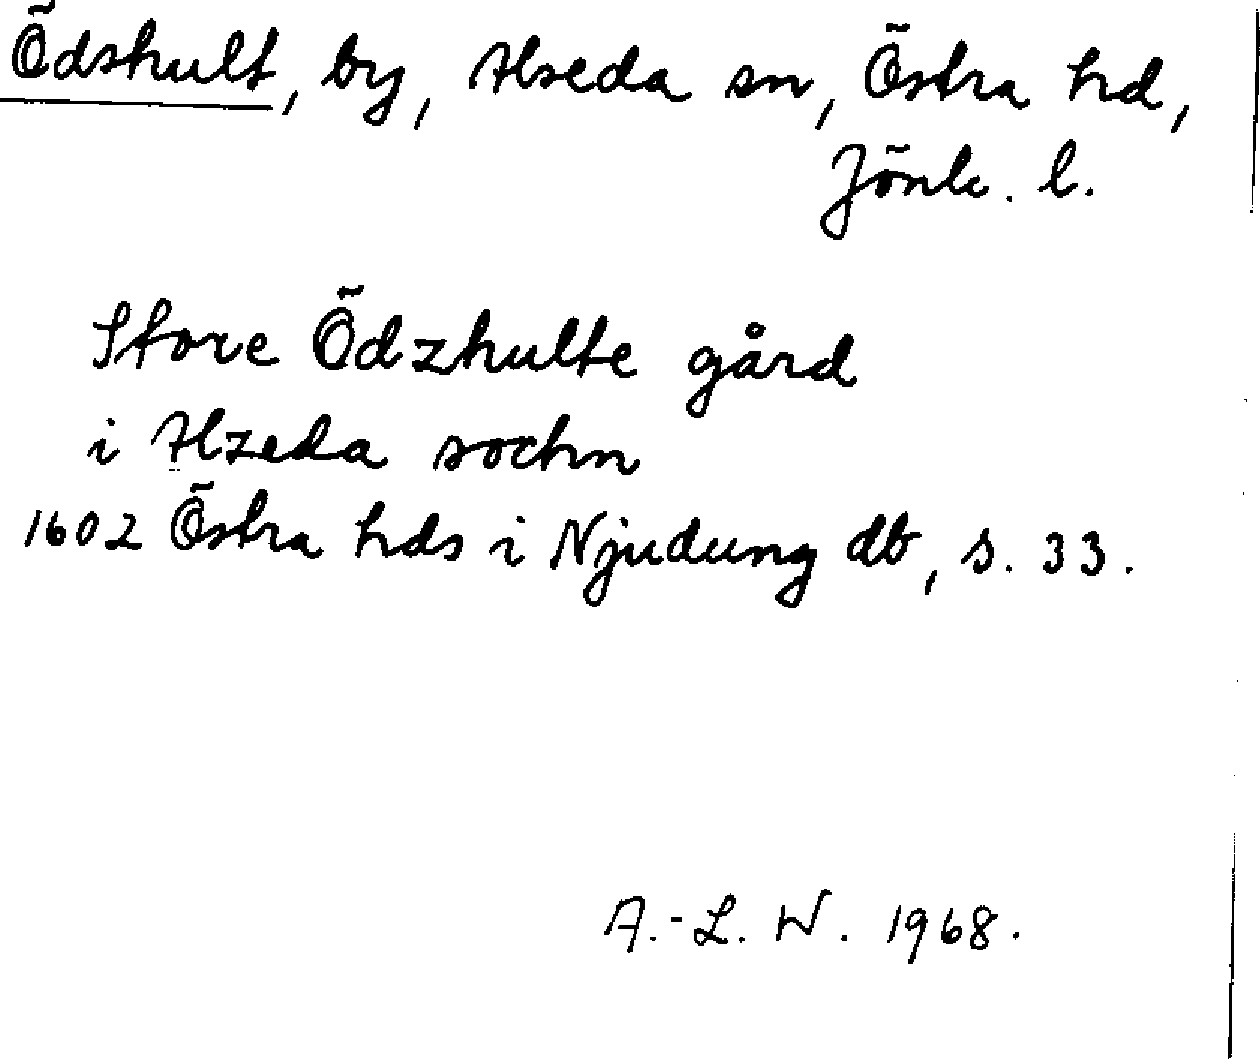 Ödshult, by, Alseda sn, Östra hd,
Jönk. l.
Store Ödzhulte gård
i Alzeda sochn
1602 Östra hds i Njudung db, s. 33.
A.-L. W. 1968.